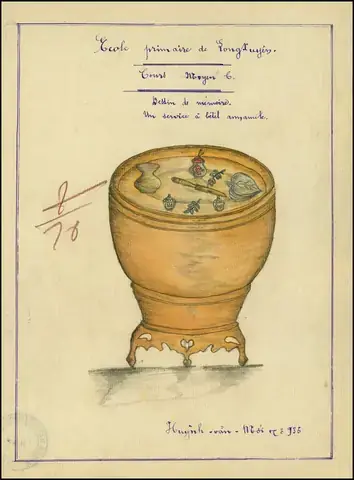 Ecole primaire de Long Xuyên.
Cours Moyen C.
Dessin de mémoire.
Un service à bétel annamite.
7/10
Huỳnh - văn - Mới